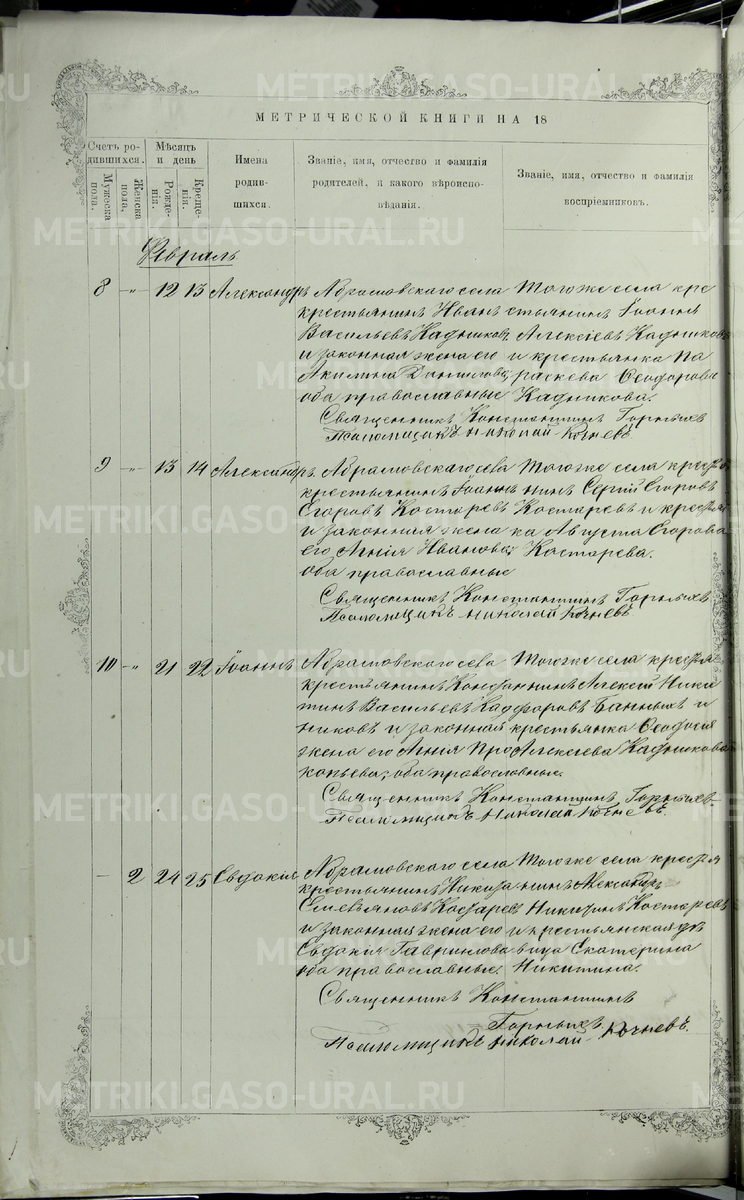 МЕТРИЧЕСКОЙ КНИГИ НА 18
Счетъ ро-
дившихся.
Мужеска пола.
Женска пола.
Мѣсяцъ и день
Рожде-
нія.
Креще-
нія.
Имена
родив-
шихся.
Званіе, имя, отчество и фамилія
родителей, и какого вѣроиспо-
вѣданія.
Званіе, имя, отчество и фамилія
воспріемниковъ.
Февраль
8 -"- 12 13 Александръ Абрамовскаго села Тогоже села кре
крестьянинъ Иванъ стьянинъ Іоаннъ
Васильевъ Кадниковъ Алексіевъ Кадниковъ
и законная жена его и крестьянка Па
Акилина Даниловa раскева Ѳеодорова
оба православные Кадникова.
Священникъ Константинъ Горныхъ
Псаломщикъ Николай Кочневъ
9 -"- 13 14 Александръ Абрамовскаго села Тогоже села крестья
крестьянинъ Іоаннъ нинъ Сергій Егоровъ
Егоровъ Костаревъ Костаревъ и крестьян
и законная жена ка Августа Егорова
его Агнія Иванова Костарева.
оба православные
Священникъ Константинъ Горныхъ
Псаломщикъ Николай Кочневъ
10 -"- 21 22 Іоаннъ Абрамовскаго села Тогоже села крестья
крестьянинъ Константинъ Алексій Ники
Васильевъ Кад форовъ Банныхъ и
никовъ и законная крестьянка Ѳеодосія
жена его Агнія Про Алексіева Кадникова
копьева; оба православные.
Священникъ Константинъ Горныхъ
Псаломщикъ Николай Кочневъ.
- 2 24 25 Евдокія Абрамовскаго села Тогоже села крестья
крестьянинъ Никита нинъ Александръ
Емельяновъ Костаревъ Никитинъ Костаревъ
и законная жена его и крестьянская дѣ
Евдокія Гаврилова вица Екатерина
оба православные. Никитина.
Священникъ Константинъ
Горныхъ
Псаломщикъ Николай Кочневъ.
METRIKI.GASO-URAL.RU